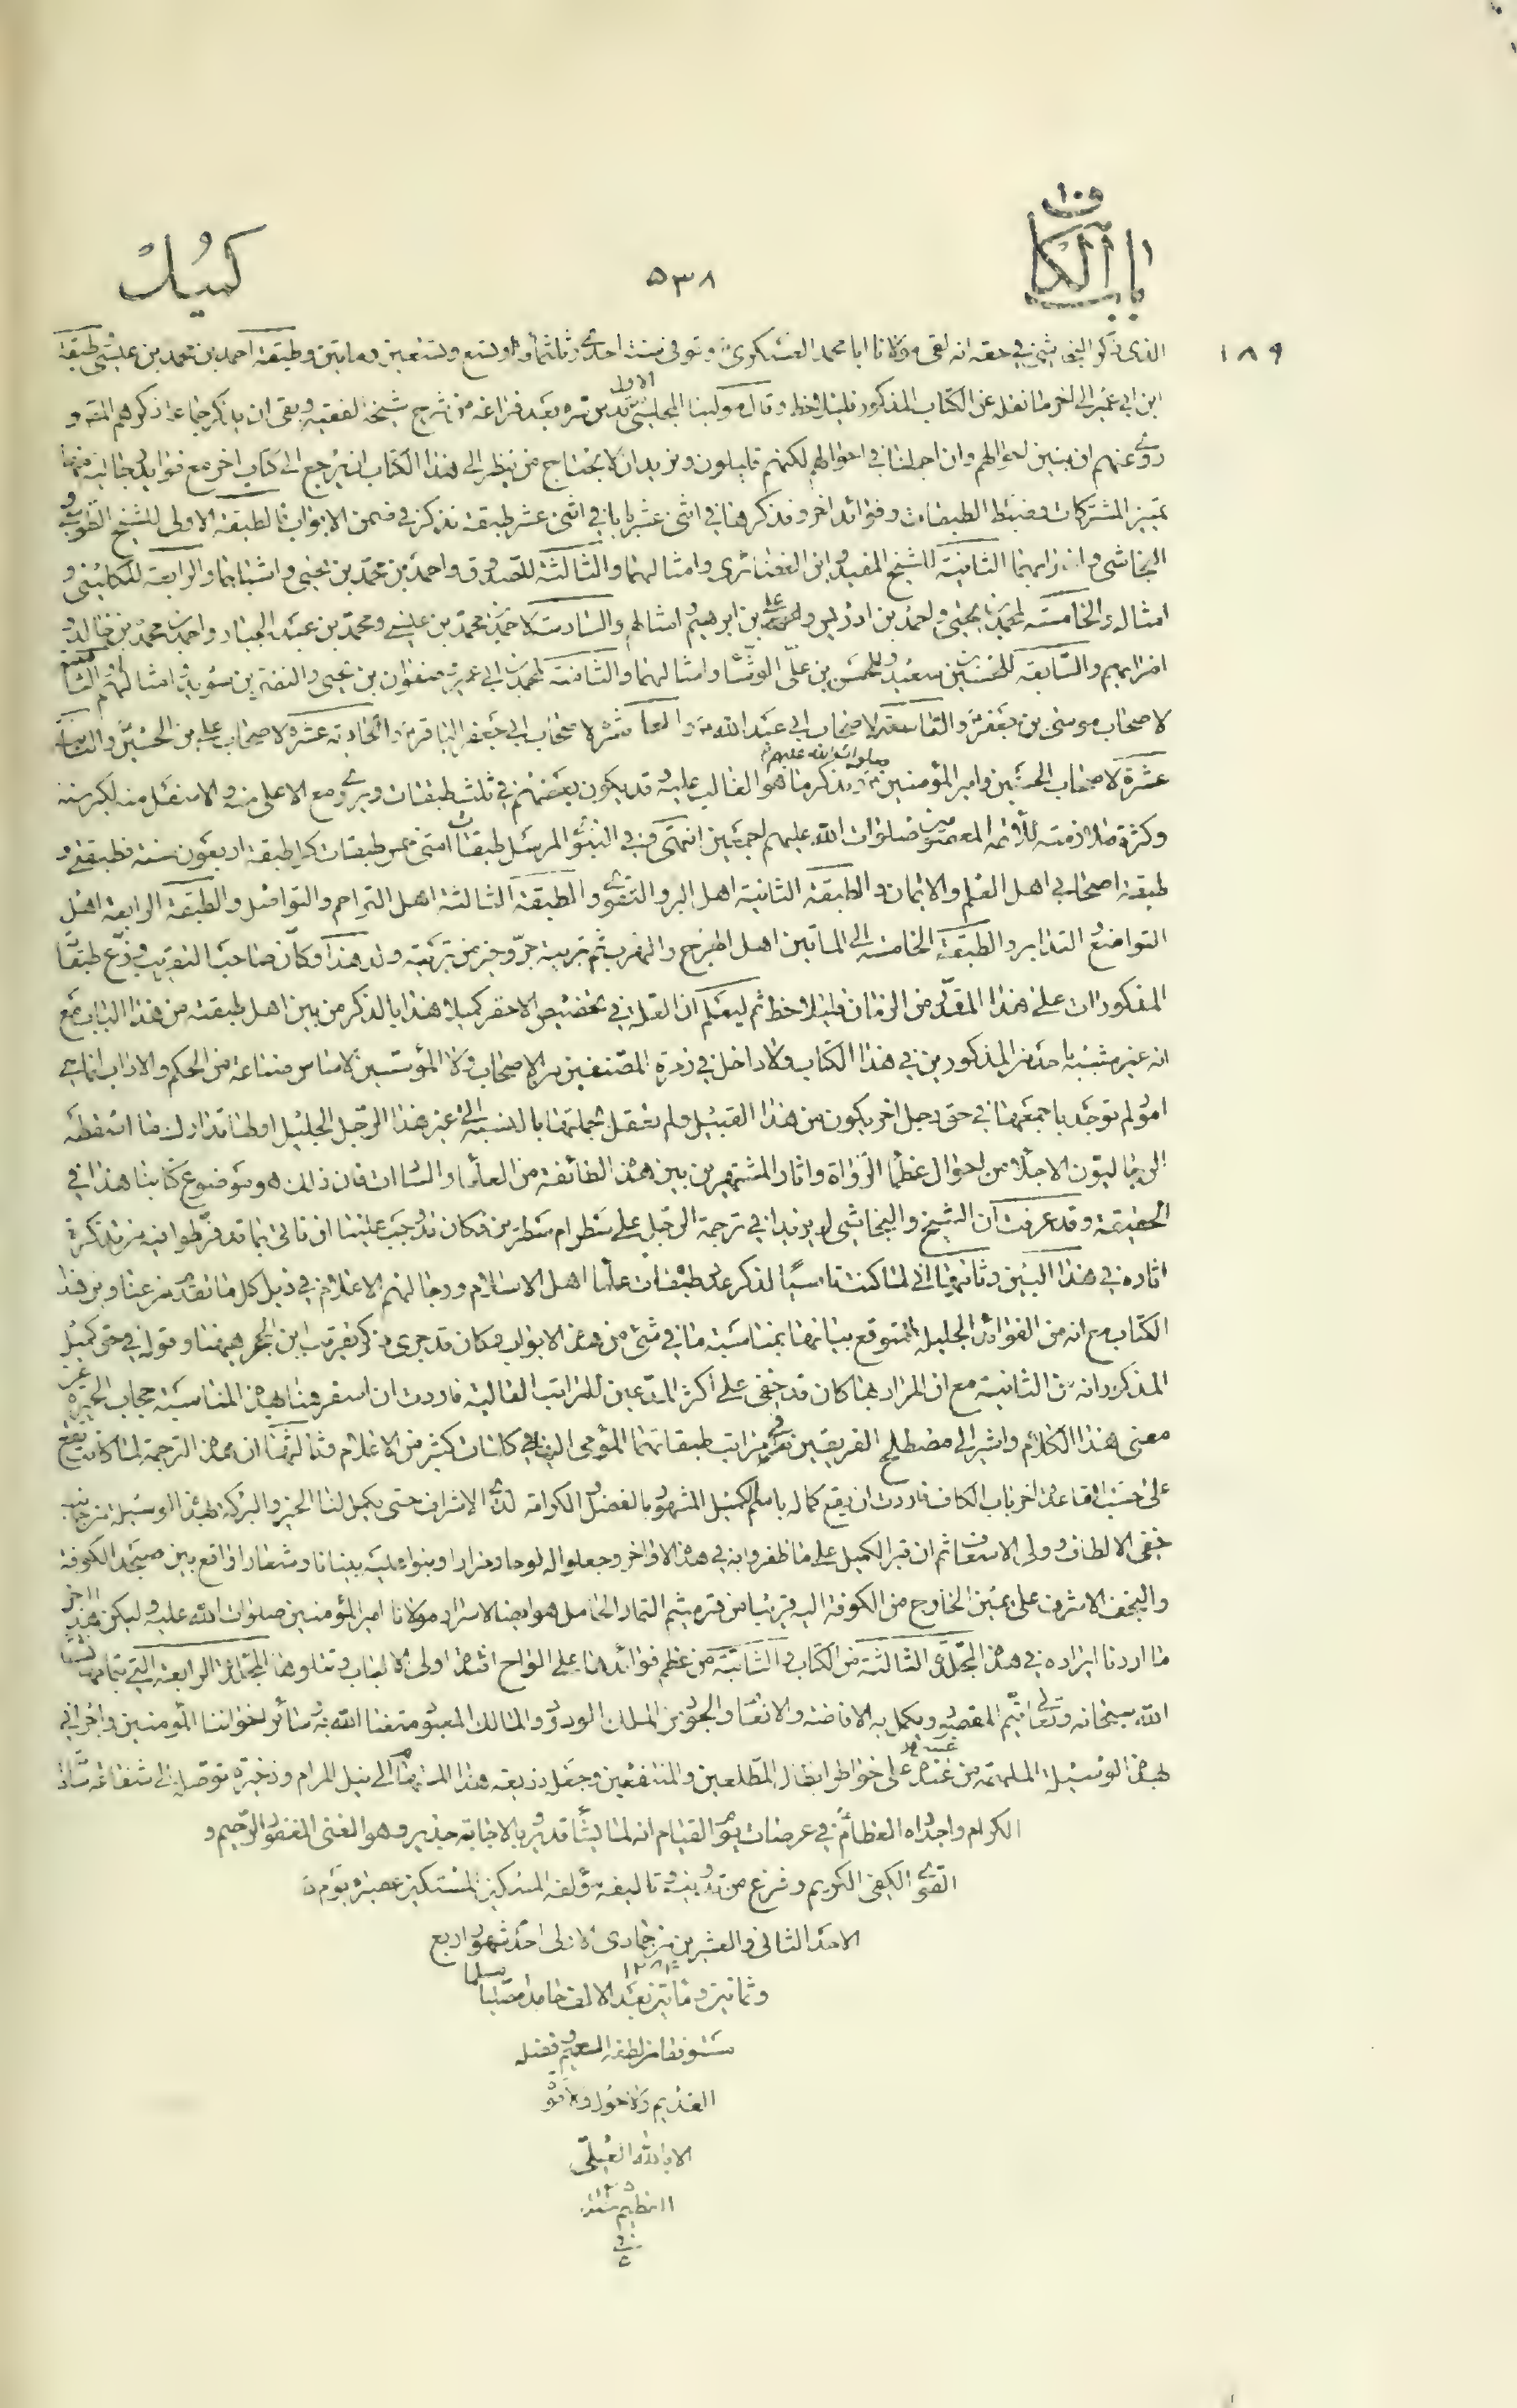 باب الكاف
٥٣٨
كميل
١٨٩
الذى ذكر النجاشى فى حقه انه لقى مولانا ابا محمد العسكرى وتوفى سنة احدى وثلثمأة او تسع وتسعين ومايتين وطبقة احمد بن محمد بن عيسى طبقة
ابن ابى عمير الى اخر ما نقله عن الكتاب المذكور فليلاحظ وقال مولينا المجلسى الاول قدس سره بعد فراغه من شرح شيخة الفقيه وبقى ان يذكر جماعة ذكرهم المص و
روى عنهم ان نبين احوالهم وان اجملنا فى احوالهم لكنهم قليلون ونريد ان لا يحتاج من ينظر الى هذا الكتاب ان يرجع الى كتاب اخر مع فوايد رجالية منها
تميز المشتركات وضبط الطبقات وفوائد اخر ونذكرها فى اثنى عشر بابا فى اثنى عشر طبقة نذكر فى ضمن الابواب فالطبقة الاولى للشيخ الطوسى و
النجاشى واضرابهما الثانية للشيخ المفيد وابن الغضائرى وامثالهما والثالثة للصدوق واحمد بن محمد بن يحيى واشباههما والرابعة للكلينى و
امثاله والخامسة لمحمد بن يحيى واحمد بن ادريس وعلى بن ابرهيم وامثالهم والسادسة لاحمد بن محمد بن عيسى ومحمد بن عبد الجبار واحمد بن محمد بن خالد و
اضرابهم والسابعة للحسين بن سعيد وللحسن بن على الوشّاء وامثالهما والثامنة لمحمد بن ابى عمير وصفوان بن يحيى والنضر بن سويد وامثالهم والتاسعة
لاصحاب موسى بن جعفر والتاسعة لاصحاب ابى عبد الله والعاشرة لاصحاب ابى جعفر الباقر والحادية عشرة لاصحاب على بن الحسين والثانية
عشرة لاصحاب الحسين وامير المؤمنين صلوات الله عليهم ونذكر ما هو الغالب عليه وقد يكون بعضهم فى ثلث طبقات ويروى مع الاعلى منه والاسفل منه لكبر سنه
وكثرة ملازمته للأئمة المعصومين صلوات الله عليهم اجمعين انتهى وفى النبوى المرسل طبقات امتى خمس طبقات كل طبقة اربعون سنة فطبقتى و
طبقة اصحابى اهل العلم والايمان والطبقة الثانية اهل البر والتقوى والطبقة الثالثة اهل التراحم والتواصل والطبقة الرابعة اهل
التواضع التدابر والطبقة الخامسة الى المأتين اهل الهرج والمرج ثم تربية جرو خير من تربية ولد هذا وكان صاحب التقريب وزّع طبقات
المذكورات على هذا المقدار من الزمان فليلاحظ ثم ليعلم ان العلة فى تخصيص الاحقر كميلا هذا بالذكر من بين اهل طبقته من هذا الباب مع
انه غير مشتبه باحد من المذكورين فى هذا الكتاب ولا داخل فى زمرة المصنفين من الاصحاب ولا المؤسسين لاساس صناعة من الحكم والاداب انما هى
امور لم توجد باجمعها فى حق رجل اخر يكون من هذا القبيل ولم تعقل جملتها بالنسبة الى غير هذا الرّجل الجليل اولها تدارك ما اسقطه
الرجاليون الاجلاء من احوال عظماء الرواة واثار المشتهرين بين هذه الطائفة من العلماء والسادات فان ذلك هو موضوع كتابنا هذا فى
الحقيقة وقد عرفت ان الشيخ والنجاشى لم يزيدا فى ترجمة الرجل على سطر ام سطرين فكان قد وجب علينا ان ناتى بما قد فرّطوا فيه من تذكرة
اثاره فى هذا البين وثانيها انى لما كنت ناسيا لذكر عدد طبقات علماء اهل الاسلام ورجالهم الاعلام فى ذيل كل ما تقدم من عناوين هذا
الكتاب مع انه من الفوائد الجليلة المتوقع بيانها بمناسبة ما فى شئ من هذه الابواب وكان قد جرى ذكر تقريب ابن الحجر هيهنا وقوله فى حق كميل
المذكور انه من الثانية مع ان المراد بها كان قد خفى على اكثر المدّعين للمراتب العالية فاردت ان اسفر هنا بهذه المناسبة حجاب الحيرة عن
معنى هذا الكلام واشير الى مصطلح الفريقين فى مراتب طبقاتهما المؤمى اليها فى كلمات كثير من الاعلام وثالثها ان هذه الترجمة لما كانت تقع
على حسب القاعدة اخر باب الكاف فاردت ان يقع كماله باسم الكميل المشهور بالفضل والكرامة لدى الاشراف حتى يكمل لنا الخير والبركة بهذه الوسيلة من جانب
خفى الالطاف وولى الاسعاف ثم ان قبر الكميل على ما ظفروا به فى هذه الاواخر وجعلوا له لوحا ومزارا وبنوا عليه بنيانا وشعارا واقع بين مسجد الكوفة
والنجف الاشرف على يمين الخارج من الكوفة اليه قريبا من قبر ميثم التمار الحامل هو ايضا لاسرار مولانا امير المؤمنين صلوات الله عليه وليكن هذا اخر
ما اردنا ايراده فى هذه المجلّدة الثالثة من الكتاب والثابتة من عظم فوائدها على الواح افئدة اولى الالباب وتتلوها المجلدة الرابعة التى بتمامها انشاء
الله سبحانه وتعالى يتم المقصود ويكمل به الافاضة والانعام والجود من الملك الودود والمالك المعبود متعنا الله به وسائر اخواننا المؤمنين واخرانى
بهذه الوسيلة الملهمة من عنده على خواطر ابطال المطلعين والمنتفعين وجعله ذريعة هذا المستهام الى نيل المرام وذخيرة توصله الى شفاعة ساداته
الكرام واجداده العظام فى عرصات يوم القيام انه لما يشاء قدير وبالاجابة جدير وهو الغنى الغفور الرحيم و
القوى الكفى الكريم وفرغ من تدوينه وتاليفه مؤلفه المسكين المستكين عصيرة يوم
الاحد الثانى والعشرين من جمادى الاولى احد شهور اربع
وثمانين ومأتين بعد الالف حامدا مصليا مسلما
من لطفه العميم وفضله
القديم ولا حول ولا قوة
الا بالله العلىّ
العظيم